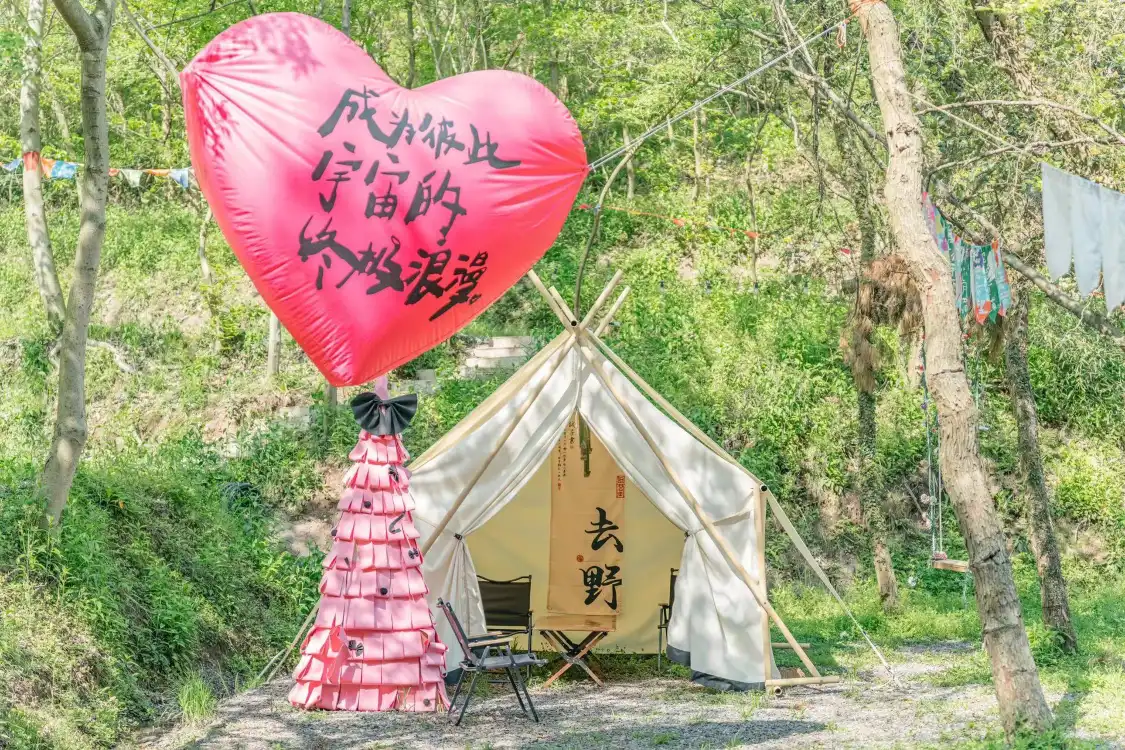 成为彼此
宇宙的
终极浪漫
去野